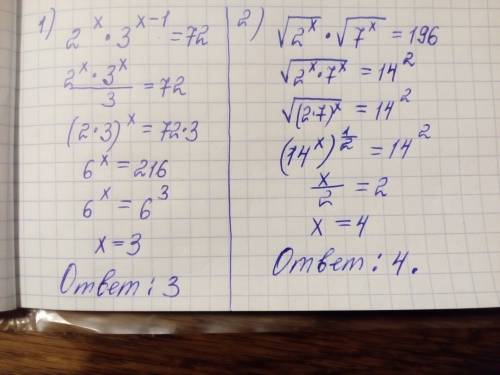 1) 2^x · 3^(x-1) = 72
(2^x · 3^x)/3 = 72
(2·3)^x = 72·3
6^x = 216
6^x = 6^3
x = 3
Ответ: 3
2) √(2^x) · √(7^x) = 196
√(2^x · 7^x) = 14^2
√((2·7)^x) = 14^2
(14^x)^(1/2) = 14^2
x/2 = 2
x = 4
Ответ: 4.